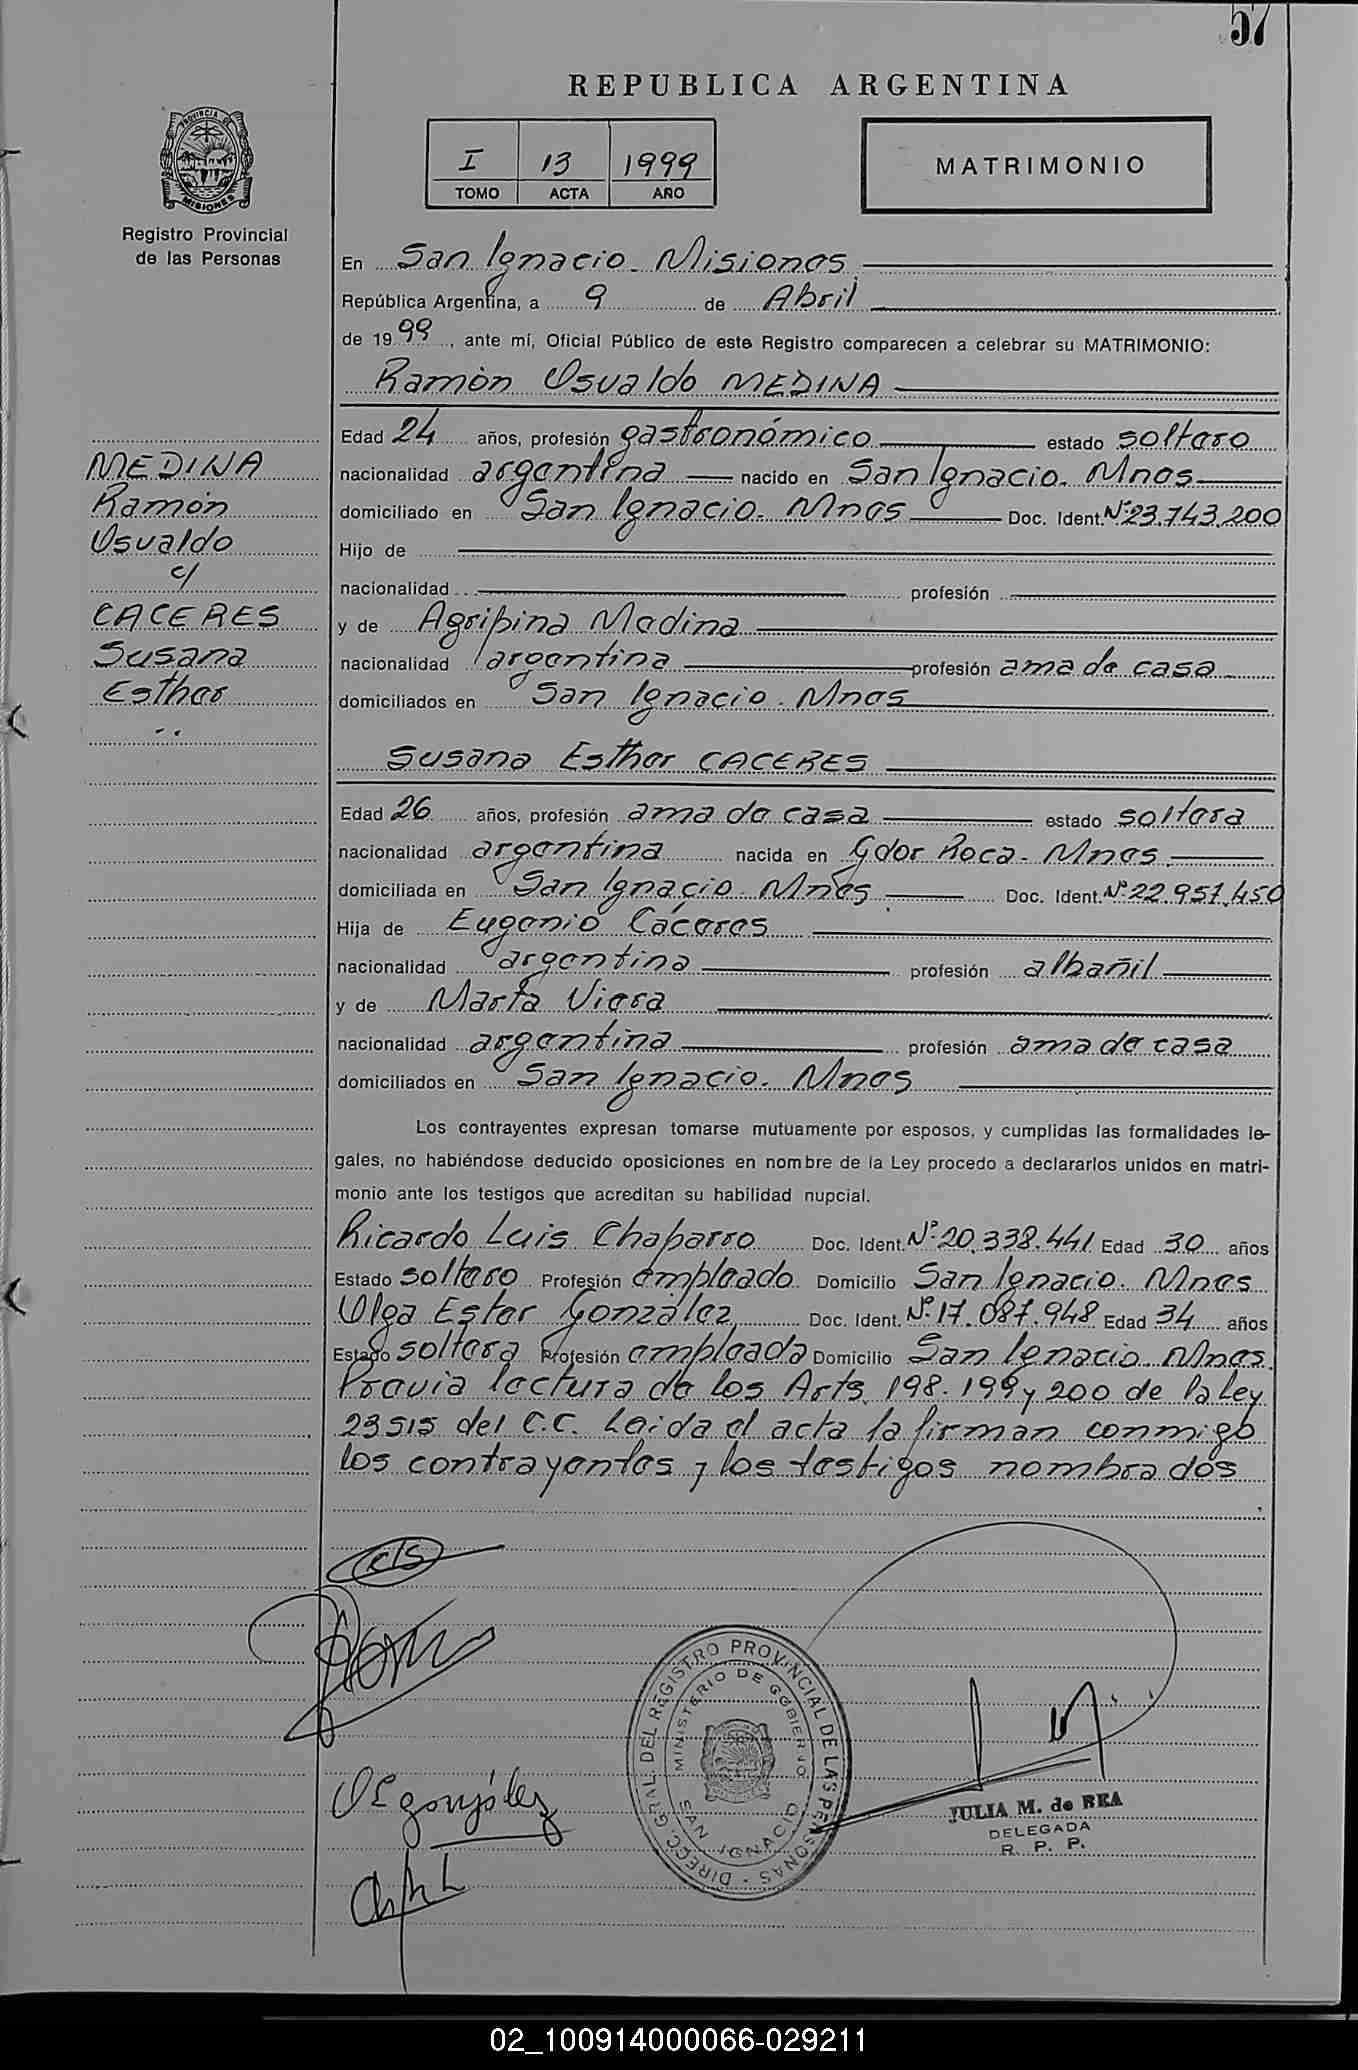 57
REPUBLICA ARGENTINA
I 13 1999
TOMO ACTA AÑO
MATRIMONIO
PROVINCIA DE
MISIONES
Registro Provincial
de las Personas
En San Ignacio. Misiones
República Argentina, a 9 de Abril
de 1999, ante mí, Oficial Público de este Registro comparecen a celebrar su MATRIMONIO:
Ramón Osvaldo MEDINA
Edad 24 años, profesión gastronómico estado soltero
nacionalidad argentina nacido en San Ignacio. Mnes
domiciliado en San Ignacio. Mnes Doc. Ident. Nº 23.743.200
Hijo de
nacionalidad profesión
y de Agripina Medina
nacionalidad argentina profesión ama de casa
domiciliados en San Ignacio. Mnes
MEDINA
Ramón
Osvaldo
y
CACERES
Susana
Esther
Susana Esther CACERES
Edad 26 años, profesión ama de casa estado soltera
nacionalidad argentina nacida en Gdor Roca. Mnes
domiciliada en San Ignacio. Mnes Doc. Ident. Nº 22.951.450
Hija de Eugenio Cáceres
nacionalidad argentina profesión albañil
y de Marta Viera
nacionalidad argentina profesión ama de casa
domiciliados en San Ignacio. Mnes
Los contrayentes expresan tomarse mutuamente por esposos, y cumplidas las formalidades le-
gales, no habiéndose deducido oposiciones en nombre de la Ley procedo a declararlos unidos en matri-
monio ante los testigos que acreditan su habilidad nupcial.
Ricardo Luis Chaparro Doc. Ident. Nº 20.338.441 Edad 30 años
Estado soltero Profesión empleado Domicilio San Ignacio. Mnes
Olga Ester González Doc. Ident. Nº 17.087.948 Edad 34 años
Estado soltera Profesión empleada Domicilio San Ignacio. Mnes.
Previa lectura de los Arts. 198. 199 y 200 de la Ley
23515 del C.C. Leída el acta la firman conmigo
los contrayentes y los testigos nombrados
OE González
DIRECC. GRAL. DEL REGISTRO PROVINCIAL DE LAS PERSONAS
MINISTERIO DE GOBIERNO
SAN IGNACIO
JULIA M. de BEA
DELEGADA
R. P. P.
02_100914000066-029211